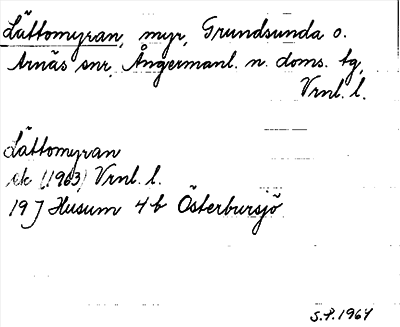 Lättomyran, myr, Grundsunda o.
Arnäs snr, Ångermanl. n. doms. tg,
Vrnl. l.
Lättomyran
ek (1963) Vrnl. l.
19 J Husum 4 b Österbursjö
S.P. 1964